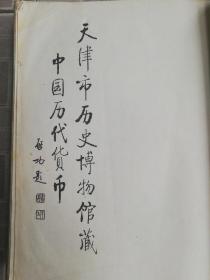 天津市历史博物馆藏
中国历代货币
启功题